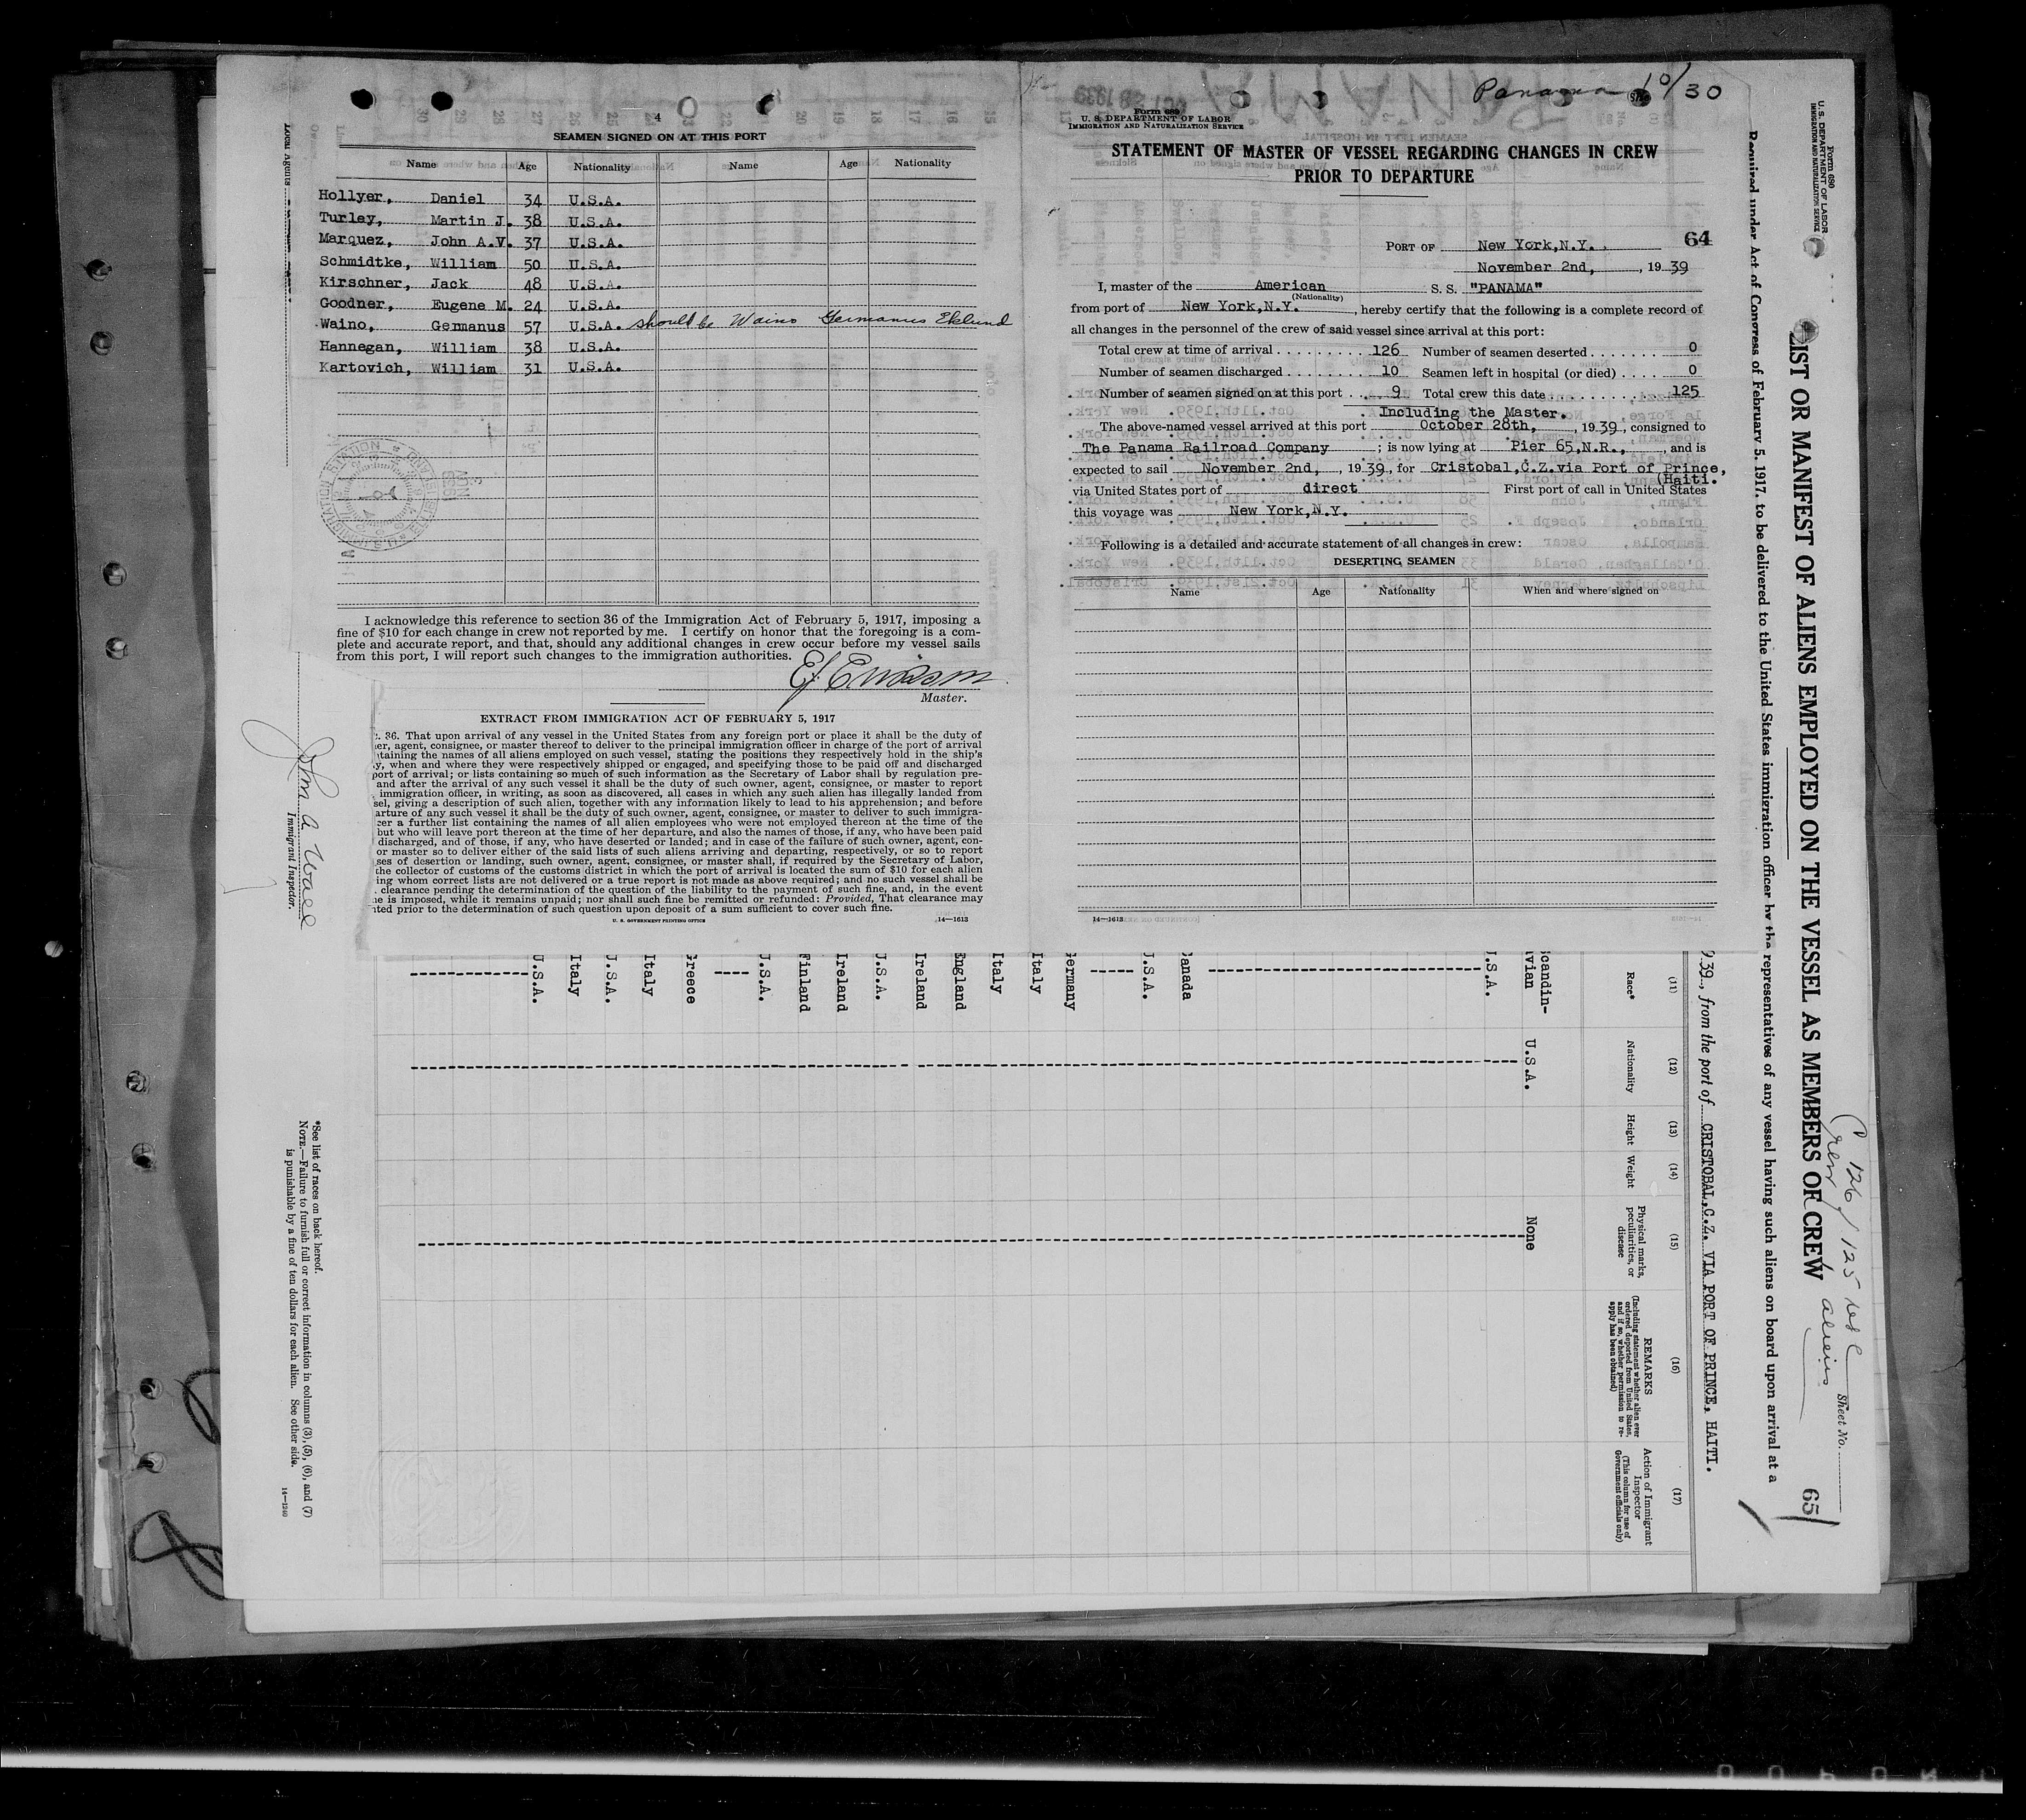 4
SEAMEN SIGNED ON AT THIS PORT
Name Age Nationality Name Age Nationality
Hollyer, Daniel 34 U.S.A.
Turley, Martin J. 38 U.S.A.
Marquez, John A.V. 37 U.S.A.
Schmidtke, William 50 U.S.A.
Kirschner, Jack 48 U.S.A.
Goodner, Eugene M. 24 U.S.A.
Waino, Germanus 57 U.S.A. should be Waino Germanus Eklund
Hannegan, William 38 U.S.A.
Kartovich, William 31 U.S.A.
I acknowledge this reference to section 36 of the Immigration Act of February 5, 1917, imposing a
fine of $10 for each change in crew not reported by me. I certify on honor that the foregoing is a com-
plete and accurate report, and that, should any additional changes in crew occur before my vessel sails
from this port, I will report such changes to the immigration authorities.
Master.
EXTRACT FROM IMMIGRATION ACT OF FEBRUARY 5, 1917
. 36. That upon arrival of any vessel in the United States from any foreign port or place it shall be the duty of
er, agent, consignee, or master thereof to deliver to the principal immigration officer in charge of the port of arrival
taining the names of all aliens employed on such vessel, stating the positions they respectively hold in the ship's
y, when and where they were respectively shipped or engaged, and specifying those to be paid off and discharged
port of arrival; or lists containing so much of such information as the Secretary of Labor shall by regulation pre-
and after the arrival of any such vessel it shall be the duty of such owner, agent, consignee, or master to report
immigration officer, in writing, as soon as discovered, all cases in which any such alien has illegally landed from
sel, giving a description of such alien, together with any information likely to lead to his apprehension; and before
arture of any such vessel it shall be the duty of such owner, agent, consignee, or master to deliver to such immigra-
cer a further list containing the names of all alien employees who were not employed thereon at the time of the
but who will leave port thereon at the time of her departure, and also the names of those, if any, who have been paid
discharged, and of those, if any, who have deserted or landed; and in case of the failure of such owner, agent, con-
or master so to deliver either of the said lists of such aliens arriving and departing, respectively, or so to report
ses of desertion or landing, such owner, agent, consignee, or master shall, if required by the Secretary of Labor,
the collector of customs of the customs district in which the port of arrival is located the sum of $10 for each alien
ing whom correct lists are not delivered or a true report is not made as above required; and no such vessel shall be
clearance pending the determination of the question of the liability to the payment of such fine, and, in the event
ne is imposed, while it remains unpaid; nor shall such fine be remitted or refunded: Provided, That clearance may
nted prior to the determination of such question upon deposit of a sum sufficient to cover such fine.
U. S. GOVERNMENT PRINTING OFFICE 14—1613
Panama 10/30
Form 689
U. S. DEPARTMENT OF LABOR
IMMIGRATION AND NATURALIZATION SERVICE
STATEMENT OF MASTER OF VESSEL REGARDING CHANGES IN CREW
PRIOR TO DEPARTURE
PORT OF New York,N.Y. 64
November 2nd, , 1939
I, master of the American S. S. "PANAMA"
(Nationality)
from port of New York,N.Y. , hereby certify that the following is a complete record of
all changes in the personnel of the crew of said vessel since arrival at this port:
Total crew at time of arrival 126 Number of seamen deserted 0
Number of seamen discharged 10 Seamen left in hospital (or died) 0
Number of seamen signed on at this port 9 Total crew this date 125
Including the Master.
The above-named vessel arrived at this port October 28th, , 1939, consigned to
The Panama Railroad Company ; is now lying at Pier 65,N.R., , and is
expected to sail November 2nd, , 1939, for Cristobal,C.Z.via Port of Prince,
(Haiti.
via United States port of direct First port of call in United States
this voyage was New York,N.Y.
Following is a detailed and accurate statement of all changes in crew:
DESERTING SEAMEN
Name Age Nationality When and where signed on
14—1613
Form 680
U. S. DEPARTMENT OF LABOR
IMMIGRATION AND NATURALIZATION SERVICE
LIST OR MANIFEST OF ALIENS EMPLOYED ON THE VESSEL AS MEMBERS OF CREW
Required under Act of Congress of February 5, 1917, to be delivered to the United States immigration officer by the representatives of any vessel having such aliens on board upon arrival at a
Crew 126 / 125 usc
aliens
Sheet No.
65
9.39, from the port of CRISTOBAL,C.Z. VIA PORT OF PRINCE, HAITI.
(11) (12) (13) (14) (15) (16) (17)
Race* Nationality Height Weight Physical marks, peculiarities, or disease
REMARKS
(Including statement whether alien ever ordered deported from United States, and if so, whether permission to re-apply has been obtained)
Action of Immigrant Inspector
(This column for use of Government officials only)
candin-
vian U.S.A. None
.S.A.
anada
.S.A.
ermany
Italy
Italy
England
Ireland
U.S.A.
Ireland
Finland
J.S.A.
Greece
Italy
J.S.A.
Italy
U.S.A.
*See list of races on back hereof.
NOTE.—Failure to furnish full or correct information in columns (3), (5), (6), and (7)
is punishable by a fine of ten dollars for each alien. See other side.
14—1240
Immigrant Inspector.
Local Agents